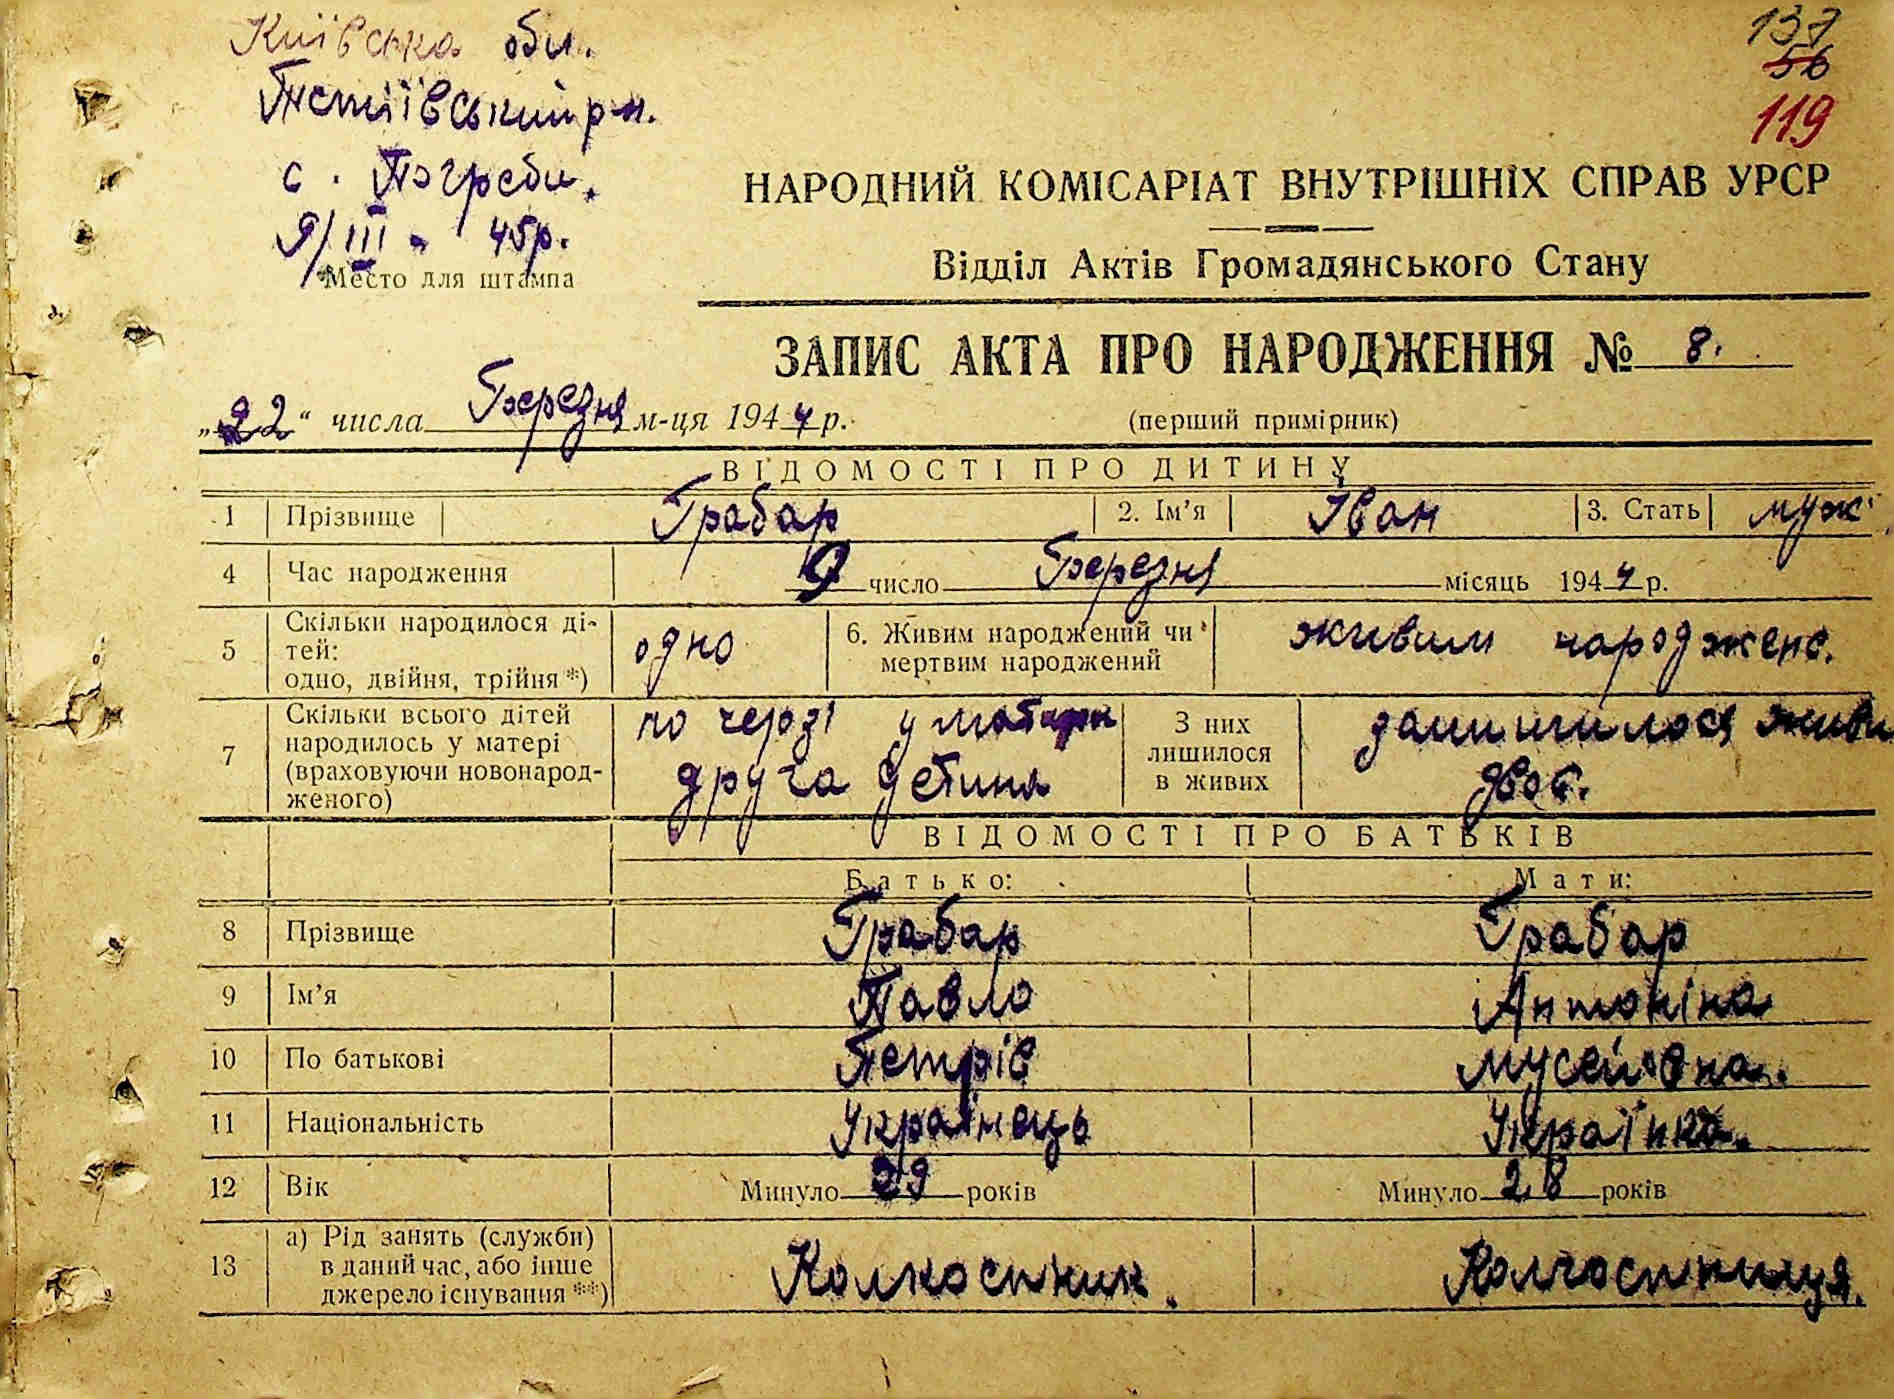 Київська обл.
Тетіївський р-н.
с. Погреби.
9/III - 45р.
Место для штампа
137
56
119
НАРОДНИЙ КОМІСАРІАТ ВНУТРІШНІХ СПРАВ УРСР
Відділ Актів Громадянського Стану
ЗАПИС АКТА ПРО НАРОДЖЕННЯ № 8.
„22“ числа Березня м-ця 1944 р.
(перший примірник)
ВІДОМОСТІ ПРО ДИТИНУ
1 Прізвище Грабар 2. Ім’я Іван 3. Стать муж.
4 Час народження 9 число Березня місяць 1944 р.
5 Скільки народилося ді-
тей:
одно, двійня, трійня *) одно 6. Живим народжений чи
мертвим народжений живим народжене.
7 Скільки всього дітей
народилось у матері
(враховуючи новонарод-
женого) по черзі у матири
друга детина З них
лишилося
в живих залишилося живи
двоє.
ВІДОМОСТІ ПРО БАТЬКІВ
Батько: Мати:
8 Прізвище Грабар Грабар
9 Ім’я Павло Антоніна
10 По батькові Петрів Мусеївна.
11 Національність Українець Українка.
12 Вік Минуло 29 років Минуло 28 років
13 а) Рід занять (служби)
в даний час, або інше
джерело існування **) Колхостник. Колгостниця.